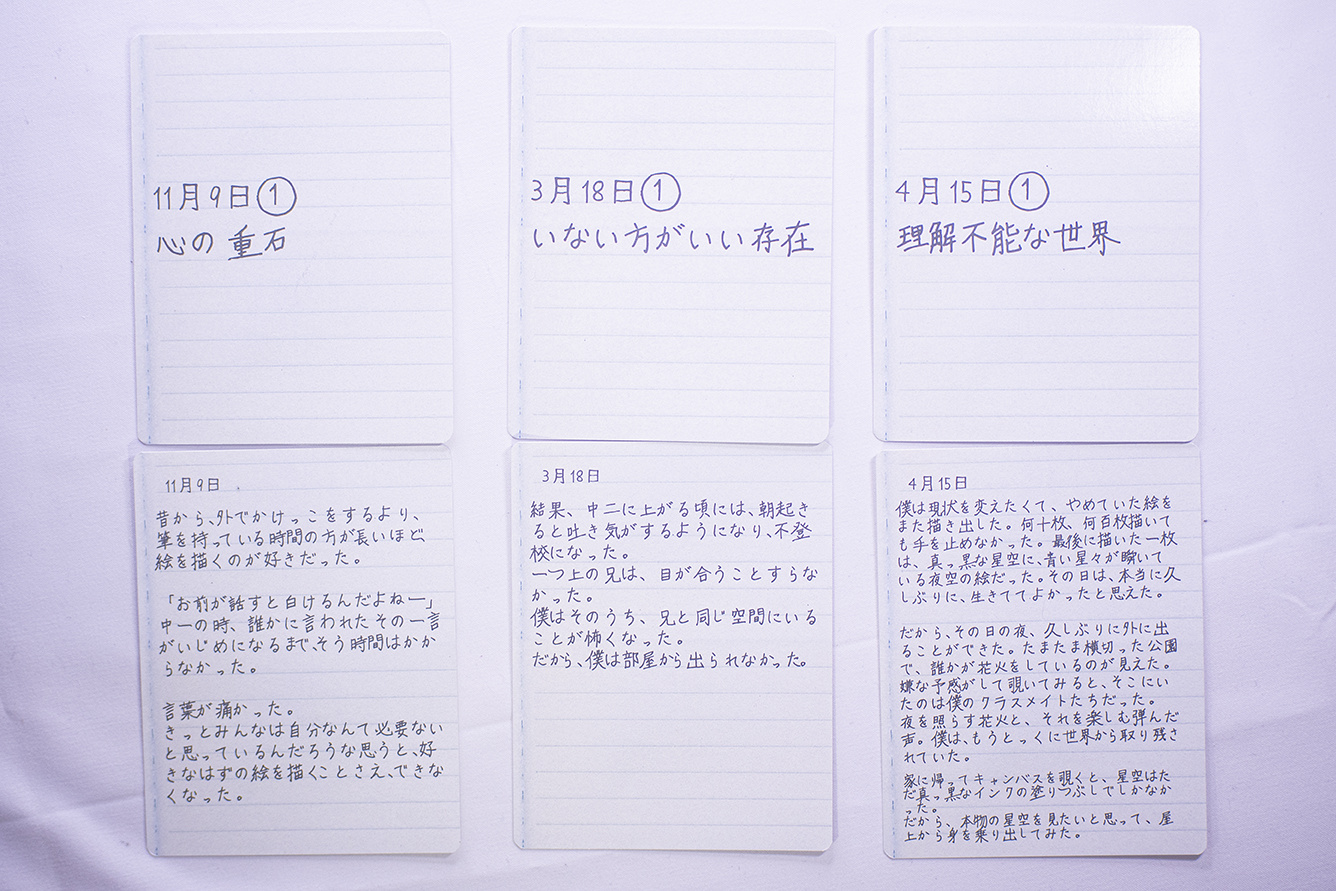 11月9日①
心の重石
3月18日①
いない方がいい存在
4月15日①
理解不能な世界
11月9日
昔から、外でかけっこをするより、
筆を持っている時間の方が長いほど、
絵を描くのが好きだった。
「お前が話すと白けるんだよねー」
中一の時、誰かに言われたその一言
がいじめになるまで、そう時間はかか
らなかった。
言葉が痛かった。
きっとみんなは自分なんて必要ない
と思っているんだろうな思うと、好
きなはずの絵を描くことさえ、できな
くなった。
3月18日
結果、中二に上がる頃には、朝起き
ると吐き気がするようになり、不登
校になった。
一つ上の兄は、目が合うことすらな
かった。
僕はそのうち、兄と同じ空間にいる
ことが怖くなった。
だから、僕は部屋から出られなかった。
4月15日
僕は現状を変えたくて、やめていた絵を
また描き出した。何十枚、何百枚描いて
も手を止めなかった。最後に描いた一枚
は、真っ黒な星空に、青い星々が瞬いて
いる夜空の絵だった。その日は、本当に久
しぶりに、生きててよかったと思えた。
だから、その日の夜、久しぶりに外に出
ることができた。たまたま横切った公園
で、誰かが花火をしているのが見えた。
嫌な予感がして覗いてみると、そこにい
たのは僕のクラスメイトたちだった。
夜を照らす花火と、それを楽しむ弾んだ
声。僕は、もうとっくに世界から取り残さ
れていた。
家に帰ってキャンバスを覗くと、星空はた
だ真っ黒なインクの塗りつぶしでしかなか
った。
だから、本物の星空を見たいと思って、屋
上から身を乗り出してみた。